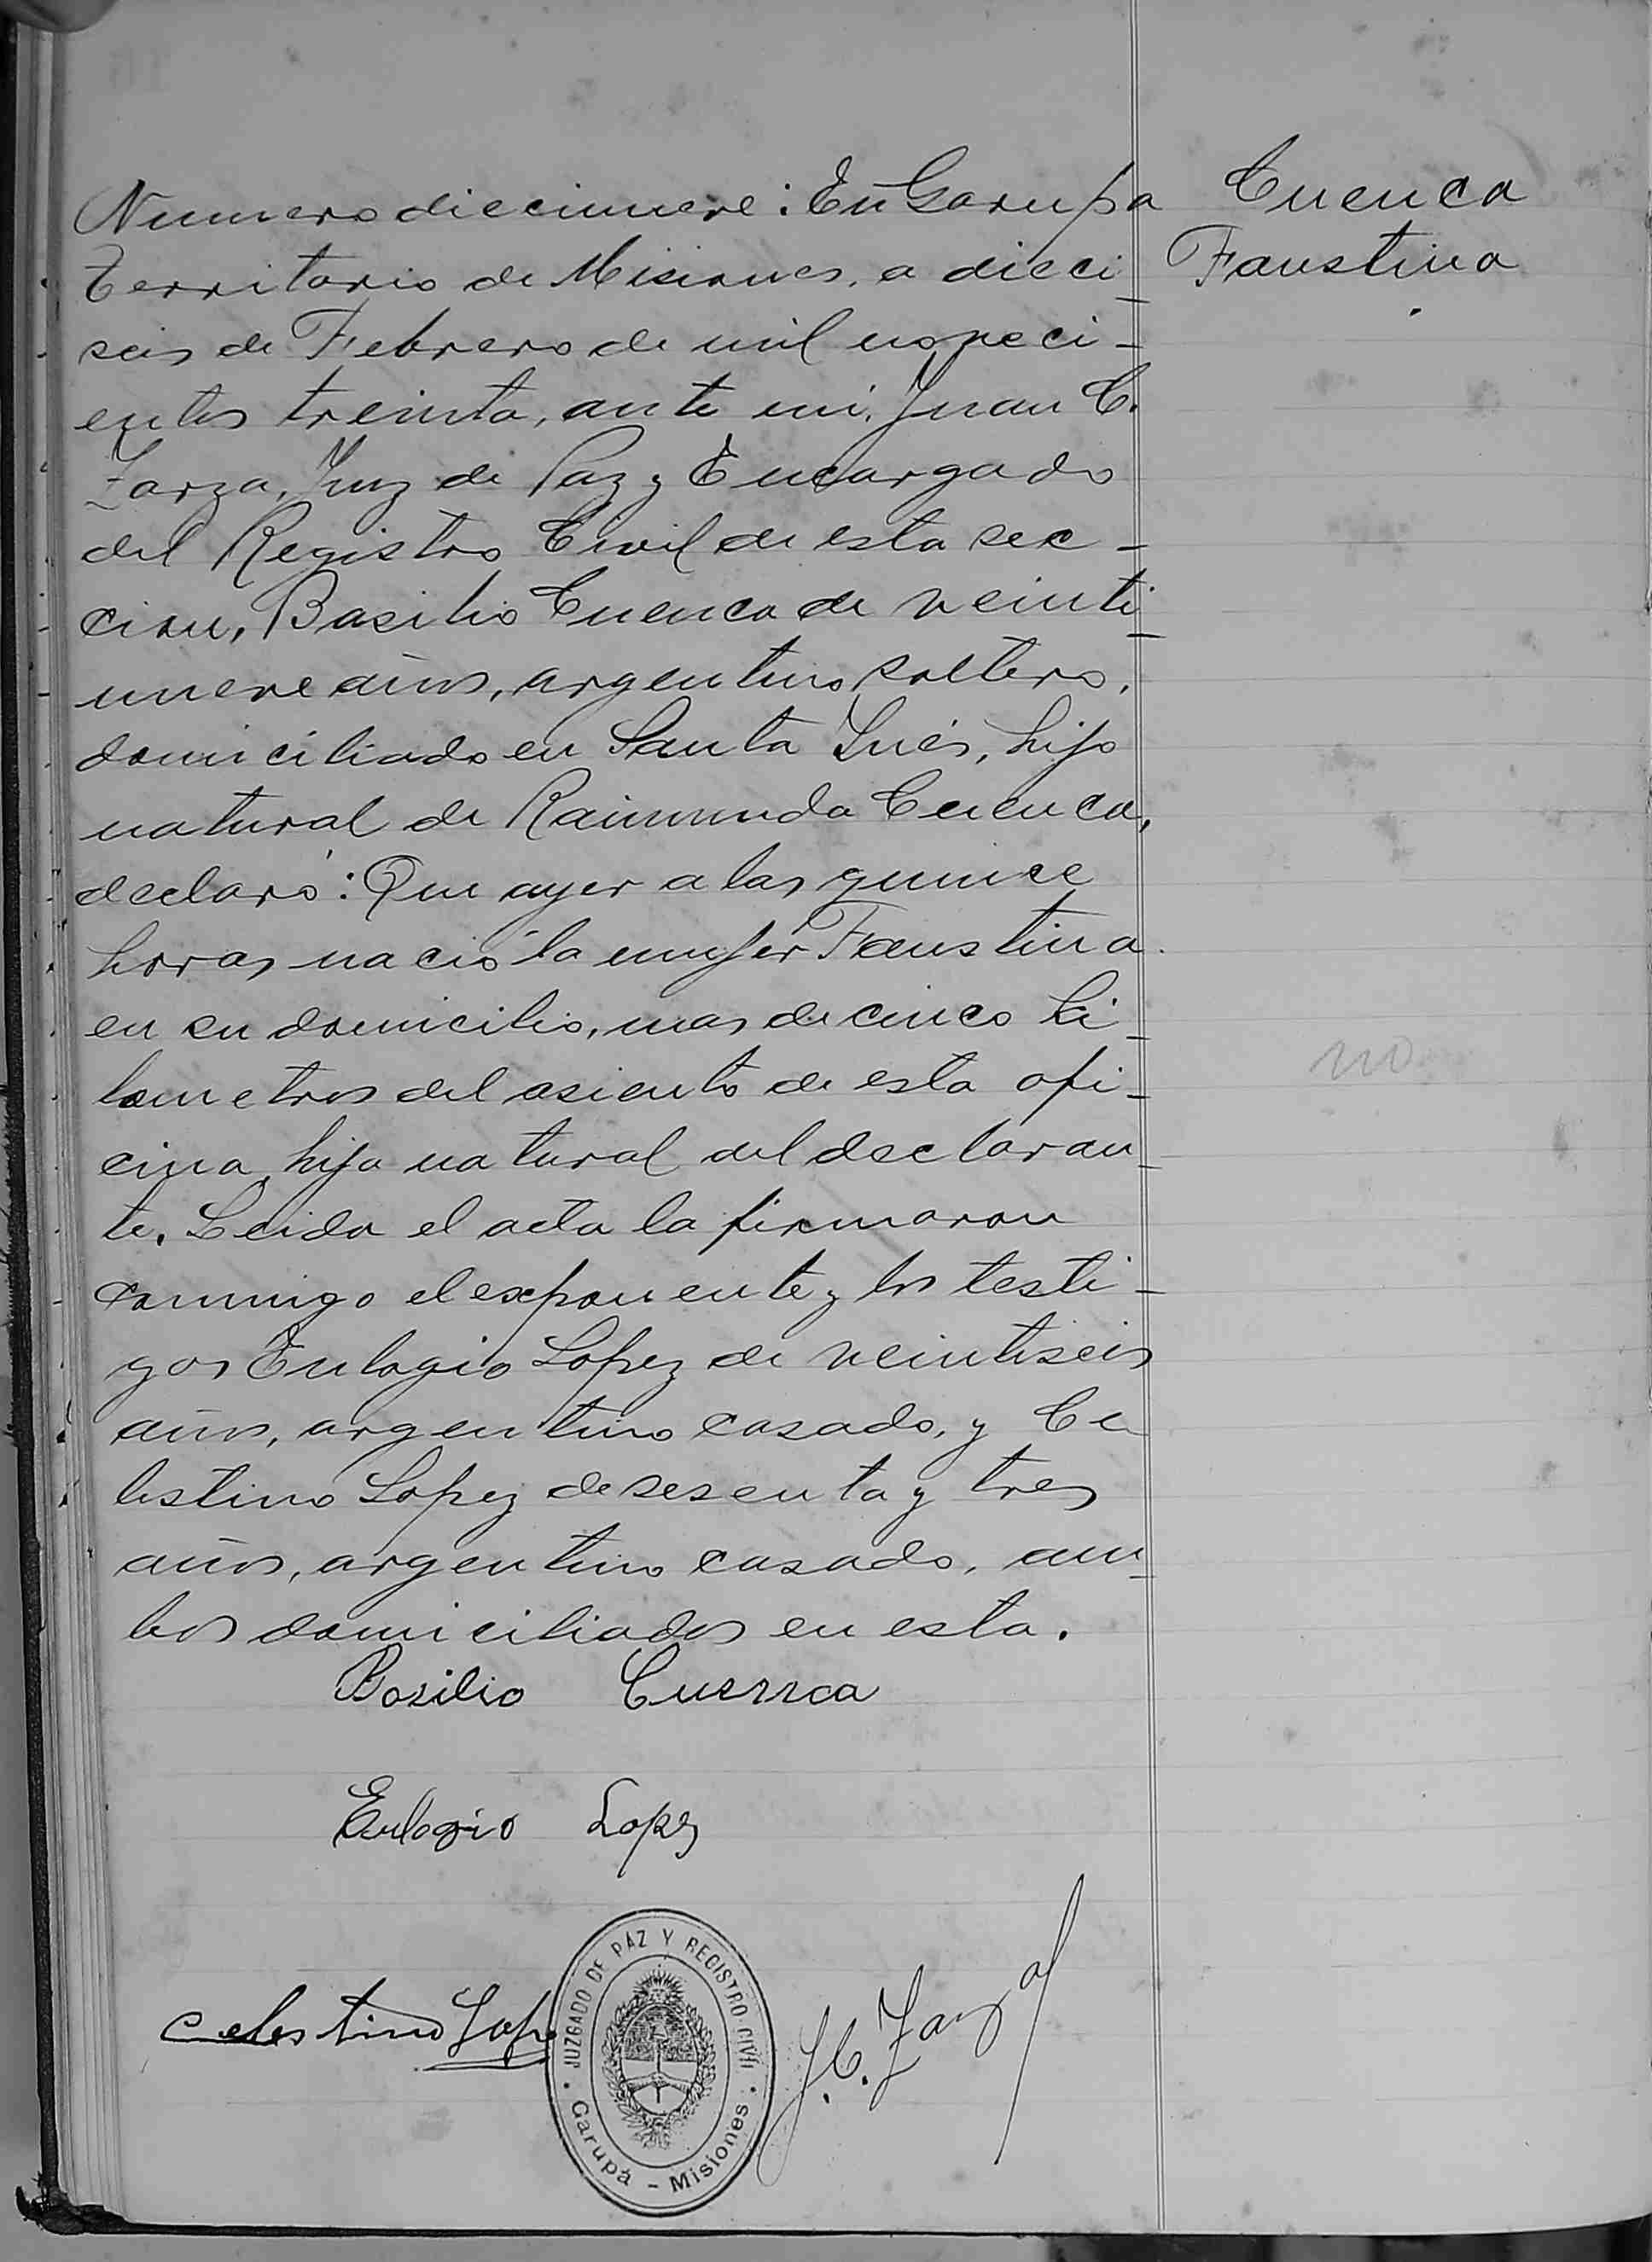 Cuenca
Faustina
Numero diecinueve: En Garupa
Territorio de Misiones, a dieci-
seis de Febrero de mil noveci-
entos treinta, ante mi, Juan C.
Zarza, Juez de Paz y Encargado
del Registro Civil de esta sec-
cion, Basilio Cuenca de veinti-
nueve años, argentino soltero,
domiciliado en Santa Inés, hijo
natural de Raimunda Cuenca,
declaró: Que ayer a las quince
horas nació la mujer Faustina
en su domicilio, mas de cinco ki-
lometros del asiento de esta ofi-
cina, hija natural del declaran-
te. Leida el acta la firmaron
conmigo el exponente y los testi-
gos Eulogio Lopez de veintiseis
años, argentino casado, y Ce
lestino Lopez de sesenta y tres
años, argentino casado, am-
bos domiciliados en esta.
no
Basilio Cuenca
Eulogio Lopez
Celestino Lope
J.C. Zarza
JUZGADO DE PAZ Y REGISTRO CIVIL
Garupá - Misiones